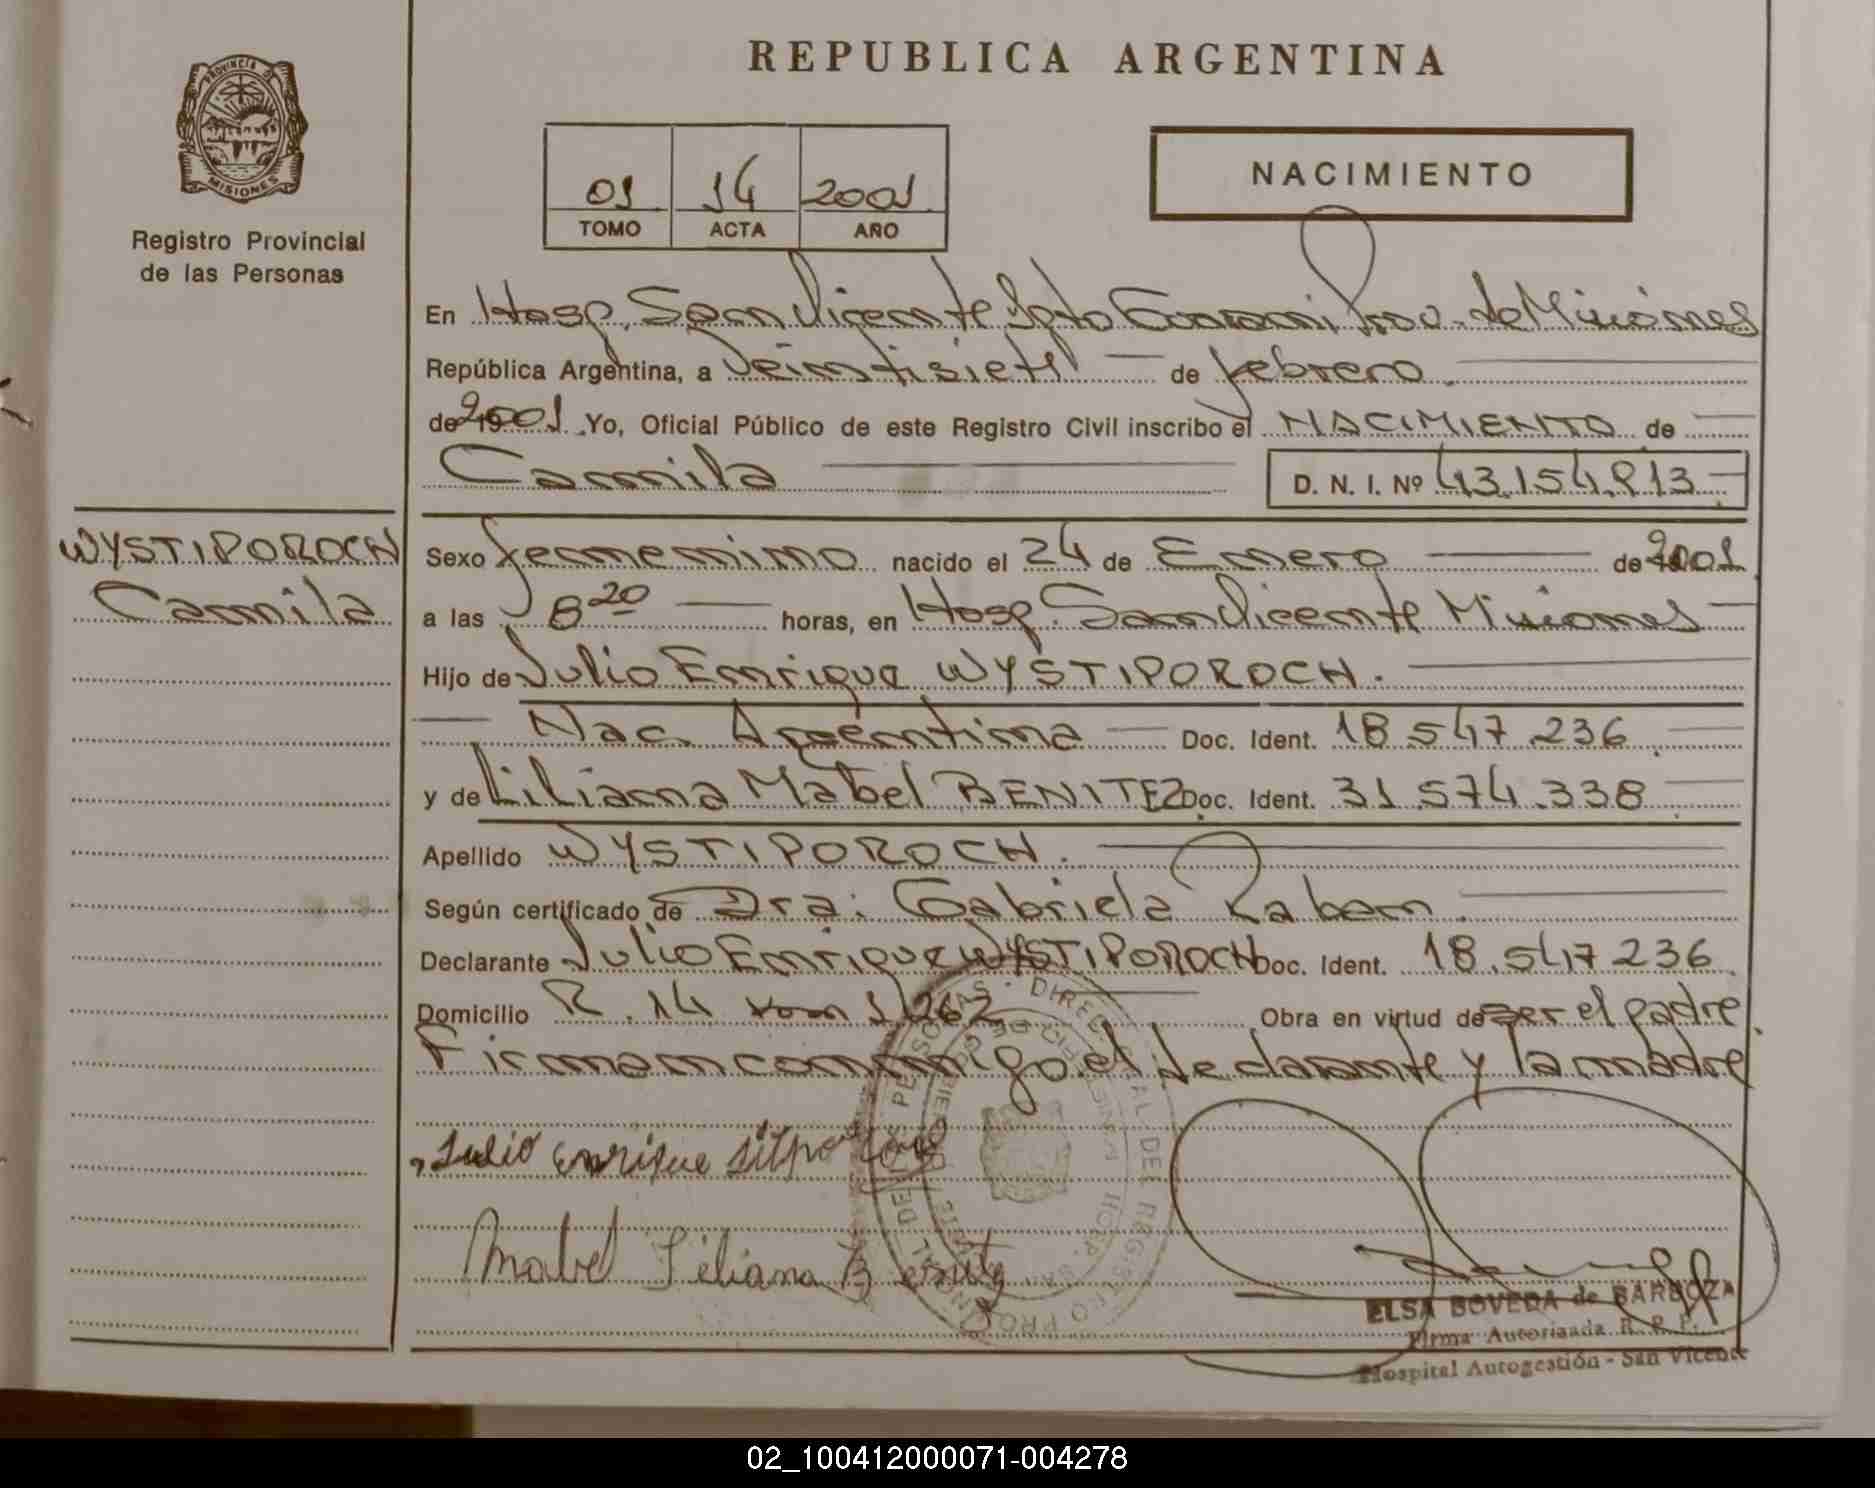 REPUBLICA ARGENTINA
PROVINCIA DE
MISIONES
Registro Provincial
de las Personas
01 14 2001
TOMO ACTA AÑO
NACIMIENTO
En Hosp. San Vicente Dpto Guarani Prov. de Misiones
República Argentina, a Veintisiete de febrero.
de 2001. Yo, Oficial Público de este Registro Civil inscribo el NACIMIENTO de
Camila D. N. I. Nº 43.154.913
WYSTIPOROCH
Camila
Sexo femenino nacido el 24 de Enero de 2001
a las 8 20 horas, en Hosp. San Vicente Misiones
Hijo de Julio Enrique WYSTIPOROCH.
Nac. Argentina Doc. Ident. 18.547.236
y de Liliana Mabel BENITEZ Doc. Ident. 31.574.338
Apellido WYSTIPOROCH.
Según certificado de Dra: Gabriela Raban.
Declarante Julio Enrique WYSTIPOROCH Doc. Ident. 18.547.236
Domicilio R. 14 km 1262 Obra en virtud de ser el padre.
Firman conmigo el declarante y la madre
Julio Enrique
Mabel Liliana Benitez
ELSA BOVEDA de BARBOZA
Firma Autorizada R. P. P.
Hospital Autogestión - San Vicente
02_100412000071-004278